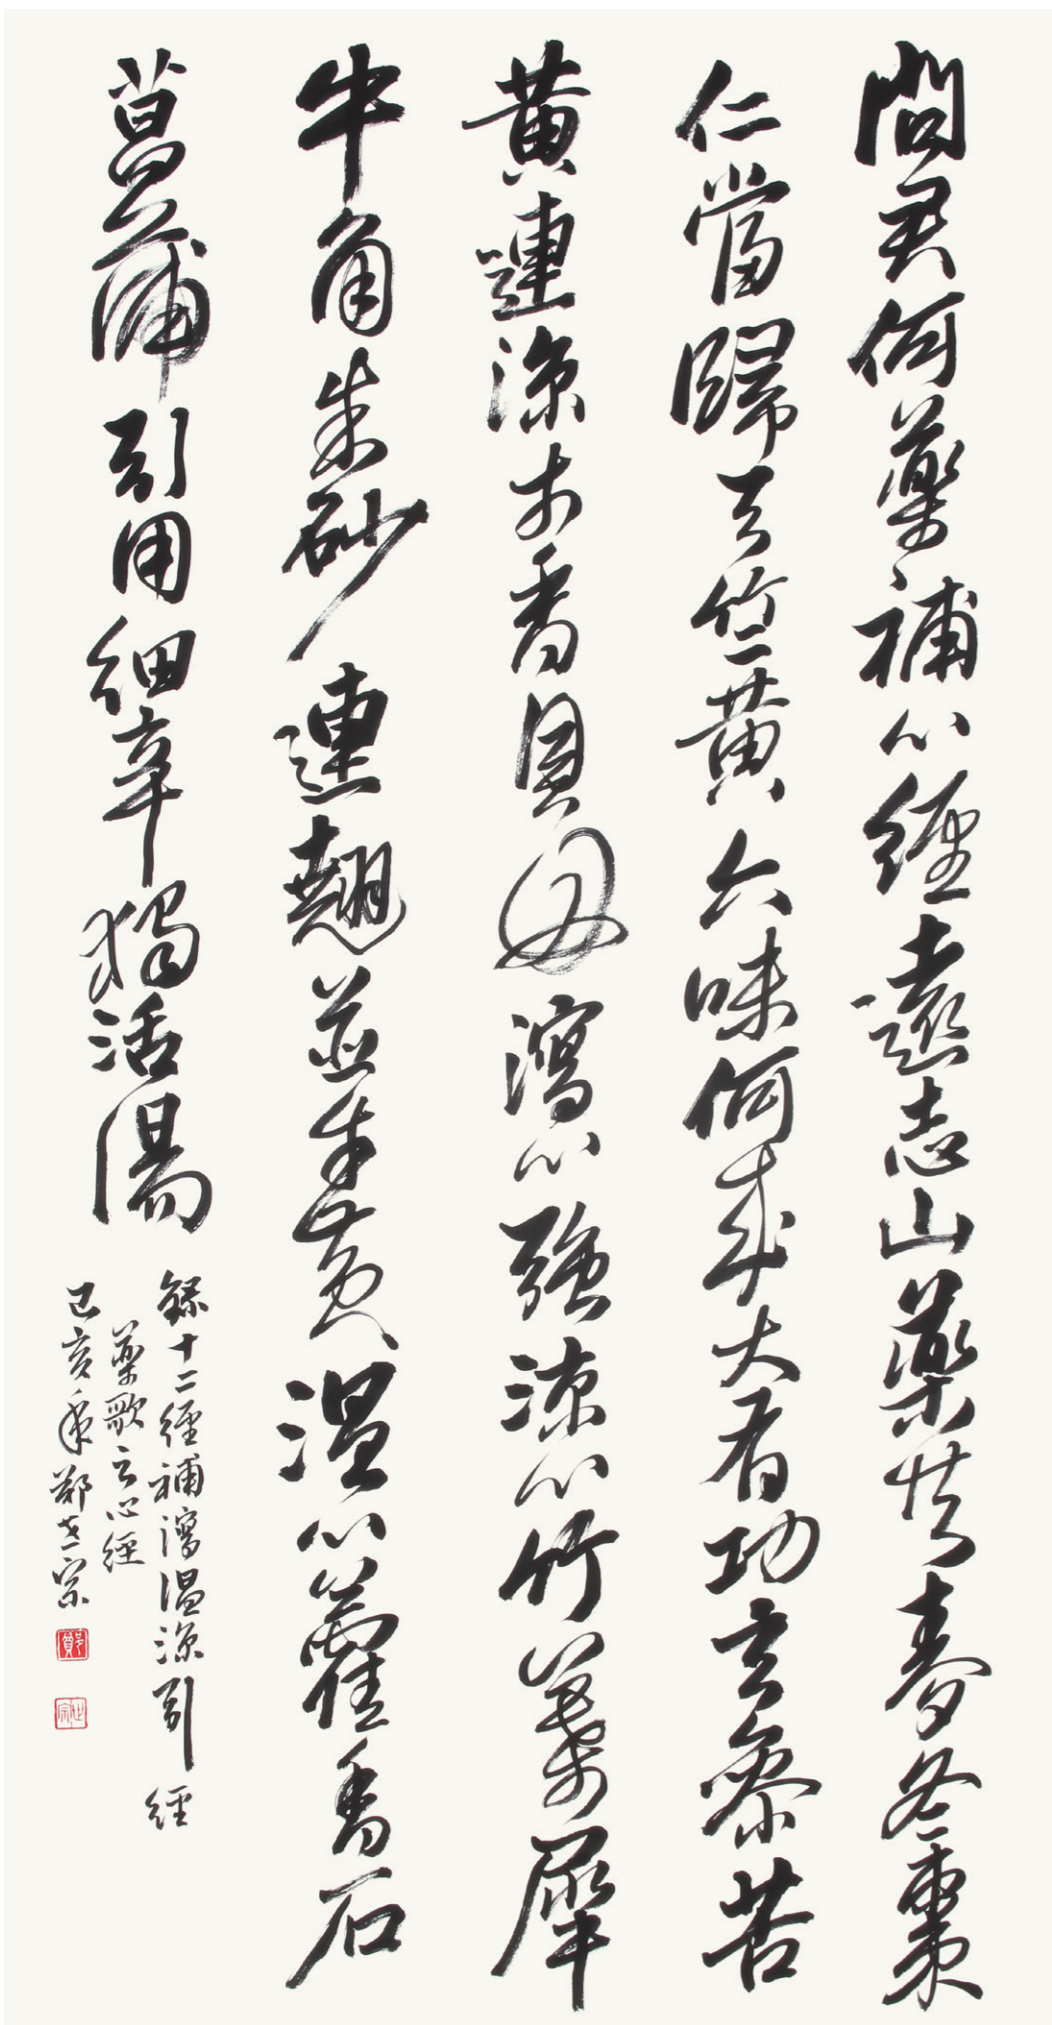 問君何藥補心經遠志山藥共麥冬棗
仁當歸天竺黃六味何愁大有功玄參苦
黃連涼木香貝母瀉心強涼心竹葉犀
牛角朱砂連翹並牛黃溫心藿香石
菖蒲引用細辛獨活湯
錄十二經補瀉溫涼引經
藥歌之心經
己亥年鄭世宗
鄭
世宗